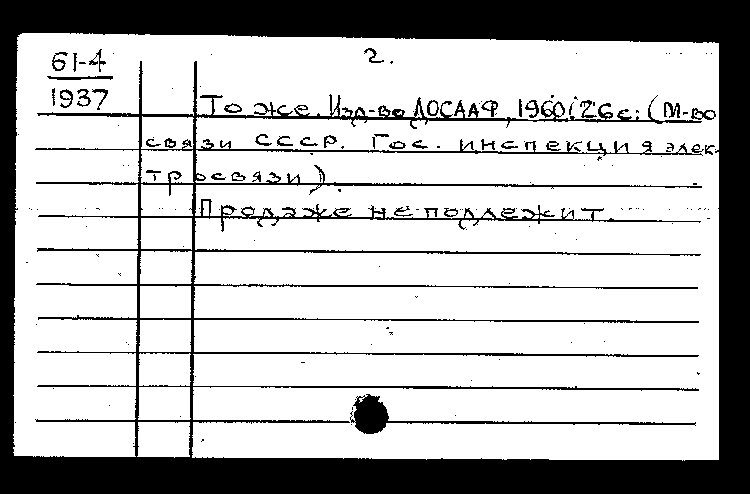 2.
61-4
1937
То же. Изд-во ДОСААФ, 1960. 26 с. (М-во
связи СССР. Гос. инспекция элек-
тросвязи).
Продаже не подлежит.